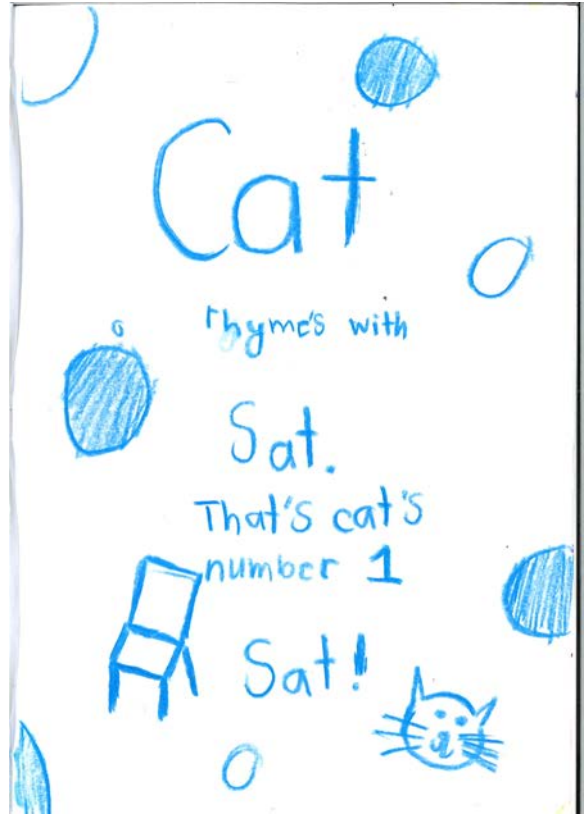 Cat
rhyme's with
Sat.
That's cat's
number 1
Sat!